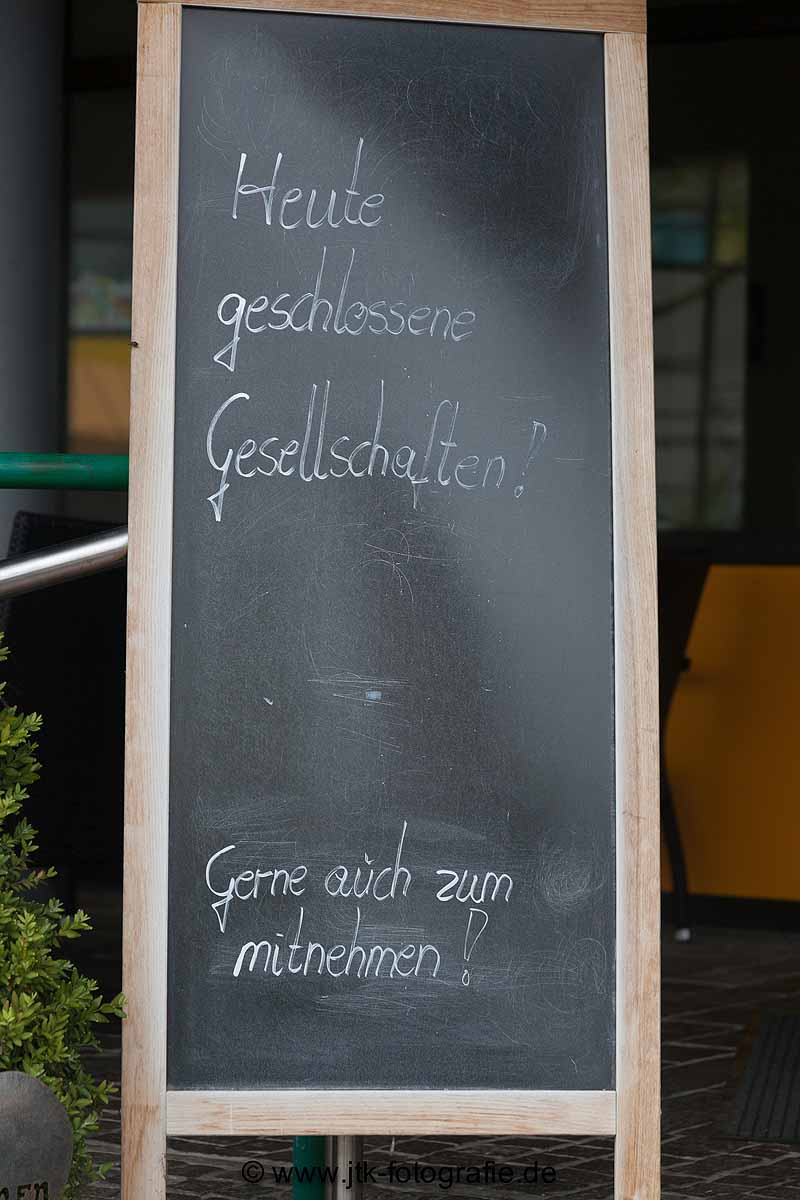 Heute
geschlossene
Gesellschaften!
Gerne auch zum
mitnehmen!
© www.jtk-fotografie.de